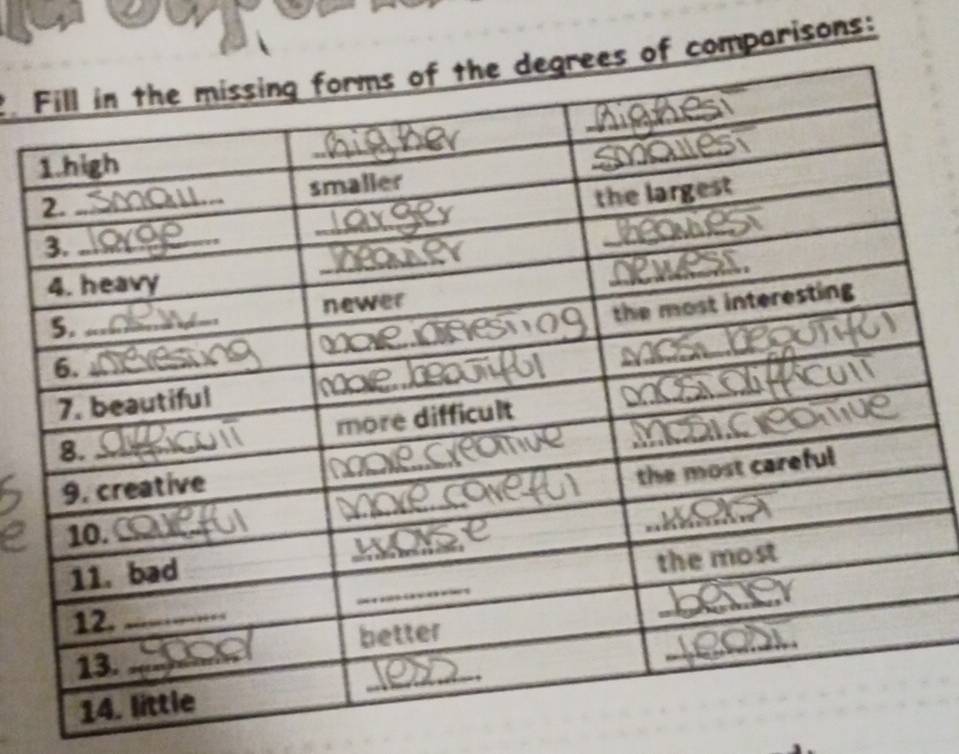 2. Fill in the missing forms of the degrees of comparisons:
1.high higher highest
2. small smaller smallest
3. large larger the largest
4. heavy heavier heaviest
5. new newer newest.
6. interesting more interesting the most interesting
7. beautiful more beautiful most beautiful
8. difficult more difficult most difficult
9. creative more creative most creative
10. careful more careful the most careful
11. bad worse worst
12. ............ ............ the most
13. good better better
14. little less least.